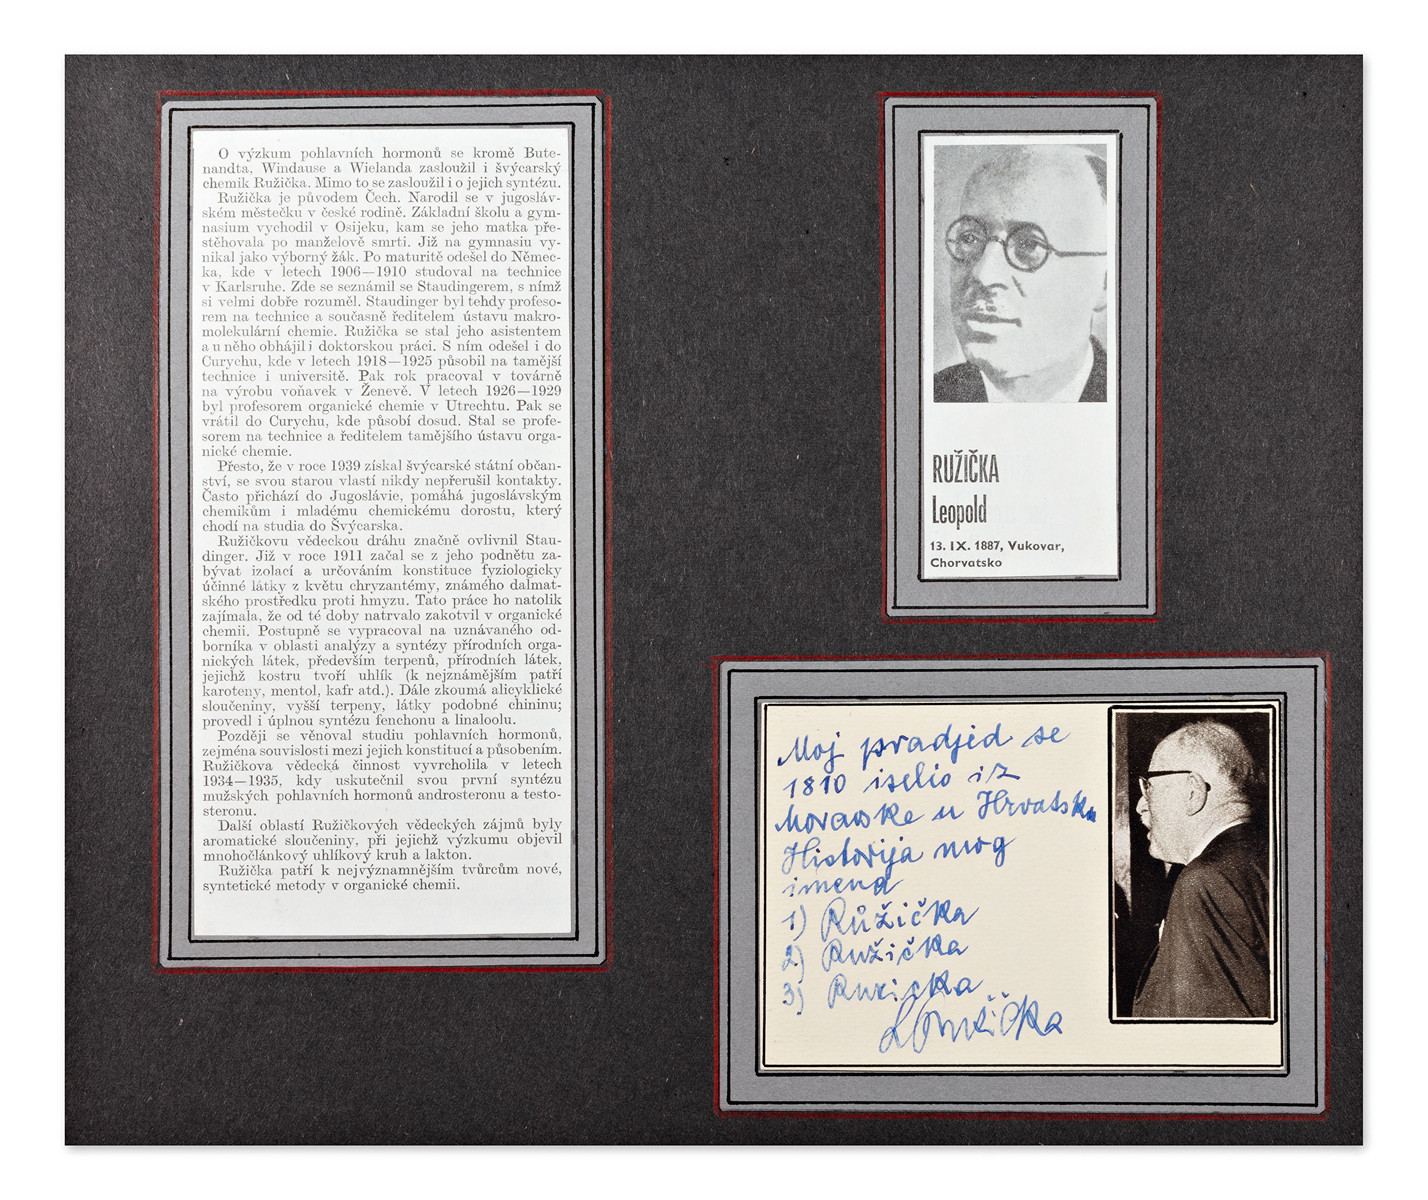 O výzkum pohlavních hormonů se kromě Bute-
nandta, Windause a Wielanda zasloužil i švýcarský
chemik Ružička. Mimo to se zasloužil i o jejich syntézu.
Ružička je původem Čech. Narodil se v jugosláv-
ském městečku v české rodině. Základní školu a gym-
nasium vychodil v Osijeku, kam se jeho matka pře-
stěhovala po manželově smrti. Již na gymnasiu vy-
nikal jako výborný žák. Po maturitě odešel do Němec-
ka, kde v letech 1906—1910 studoval na technice
v Karlsruhe. Zde se seznámil se Staudingerem, s nímž
si velmi dobře rozuměl. Staudinger byl tehdy profeso-
rem na technice a současně ředitelem ústavu makro-
molekulární chemie. Ružička se stal jeho asistentem
a u něho obhájil i doktorskou práci. S ním odešel i do
Curychu, kde v letech 1918—1925 působil na tamější
technice i universitě. Pak rok pracoval v továrně
na výrobu voňavek v Ženevě. V letech 1926—1929
byl profesorem organické chemie v Utrechtu. Pak se
vrátil do Curychu, kde působí dosud. Stal se profe-
sorem na technice a ředitelem tamějšího ústavu orga-
nické chemie.
Přesto, že v roce 1939 získal švýcarské státní občan-
ství, se svou starou vlastí nikdy nepřerušil kontakty.
Často přichází do Jugoslávie, pomáhá jugoslávským
chemikům i mladému chemickému dorostu, který
chodí na studia do Švýcarska.
Ružičkovu vědeckou dráhu značně ovlivnil Stau-
dinger. Již v roce 1911 začal se z jeho podnětu za-
bývat izolací a určováním konstituce fyziologicky
účinné látky z květu chryzantémy, známého dalmat-
ského prostředku proti hmyzu. Tato práce ho natolik
zajímala, že od té doby natrvalo zakotvil v organické
chemii. Postupně se vypracoval na uznávaného od-
borníka v oblasti analýzy a syntézy přírodních orga-
nických látek, především terpenů, přírodních látek,
jejichž kostru tvoří uhlík (k nejznámějším patří
karoteny, mentol, kafr atd.). Dále zkoumá alicyklické
sloučeniny, vyšší terpeny, látky podobné chininu;
provedl i úplnou syntézu fenchonu a linaloolu.
Později se věnoval studiu pohlavních hormonů,
zejména souvislosti mezi jejich konstitucí a působením.
Ružičkova vědecká činnost vyvrcholila v letech
1934—1935, kdy uskutečnil svou první syntézu
mužských pohlavních hormonů androsteronu a testo-
steronu.
Další oblastí Ružičkových vědeckých zájmů byly
aromatické sloučeniny, při jejichž výzkumu objevil
mnohočlánkový uhlíkový kruh a lakton.
Ružička patří k nejvýznamnějším tvůrcům nové,
syntetické metody v organické chemii.
RUŽIČKA
Leopold
13. IX. 1887, Vukovar,
Chorvatsko
Moj pradjed se
1810 iselio iz
Moravske u Hrvatsku
Historija mog
imena
1) Růžička
2) Ružička
3) Ruzicka
L Ružička